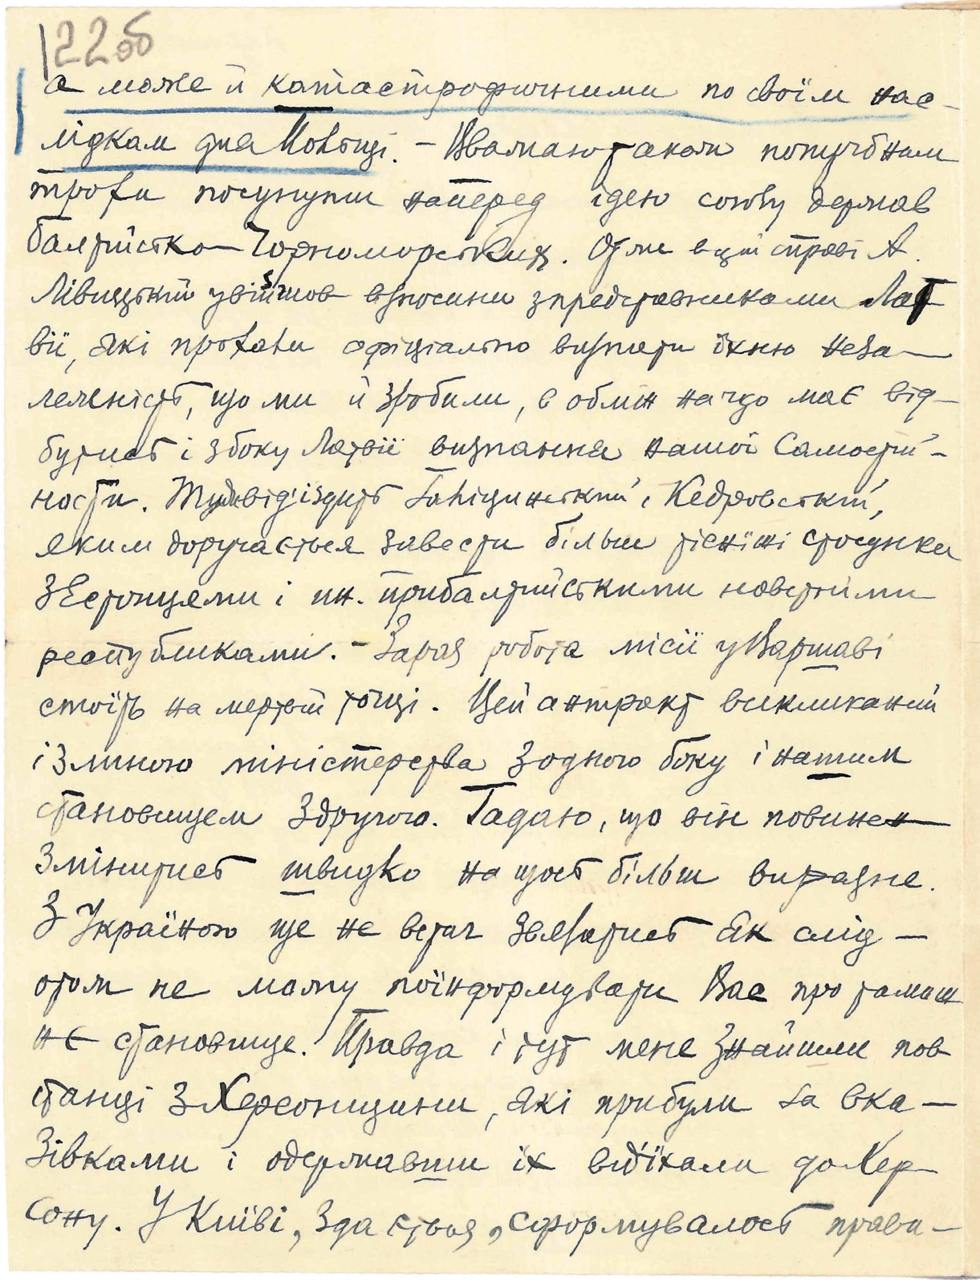 122об
а може й катастрофичними по своїм нас-
лідкам для Польщі. – Вважаю також потрібним
трохи посунути наперед ідею союзу держав
балтійсько-Чорноморських. Отже в цій справі А.
Лівицький увійшов в зносини з представниками Лат
вії, які прохали офіціально визнати їхню неза-
лежність, що ми й зробили, в обмін на що має від-
бутись і з боку Латвії визнання нашої Самостій-
ности. Туди від'їздить Галіцинський і Кедровський,
яким доручається завести більш тісніші стосунки
з Естонцями і ин. прибалтійськими новітніми
республиками. – Зараз робота місії у Варшаві
стоїть на мертвій точці. Цей антракт викликаний
і зміною міністерства з одного боку і нашим
становищем з другого. Гадаю, що він повинен
змінитись швидко на щось більш виразне.
З Україною ще не встиг звязатись як слід –
отож не можу поінформувати Вас про тамаш
нє становище. Правда і тут мене знайшли пов
станці з Херсонщини, які прибули за вка-
зівками і одержавши їх відїхали до Хер
сону. У Київі, здається, сформувалось прави-